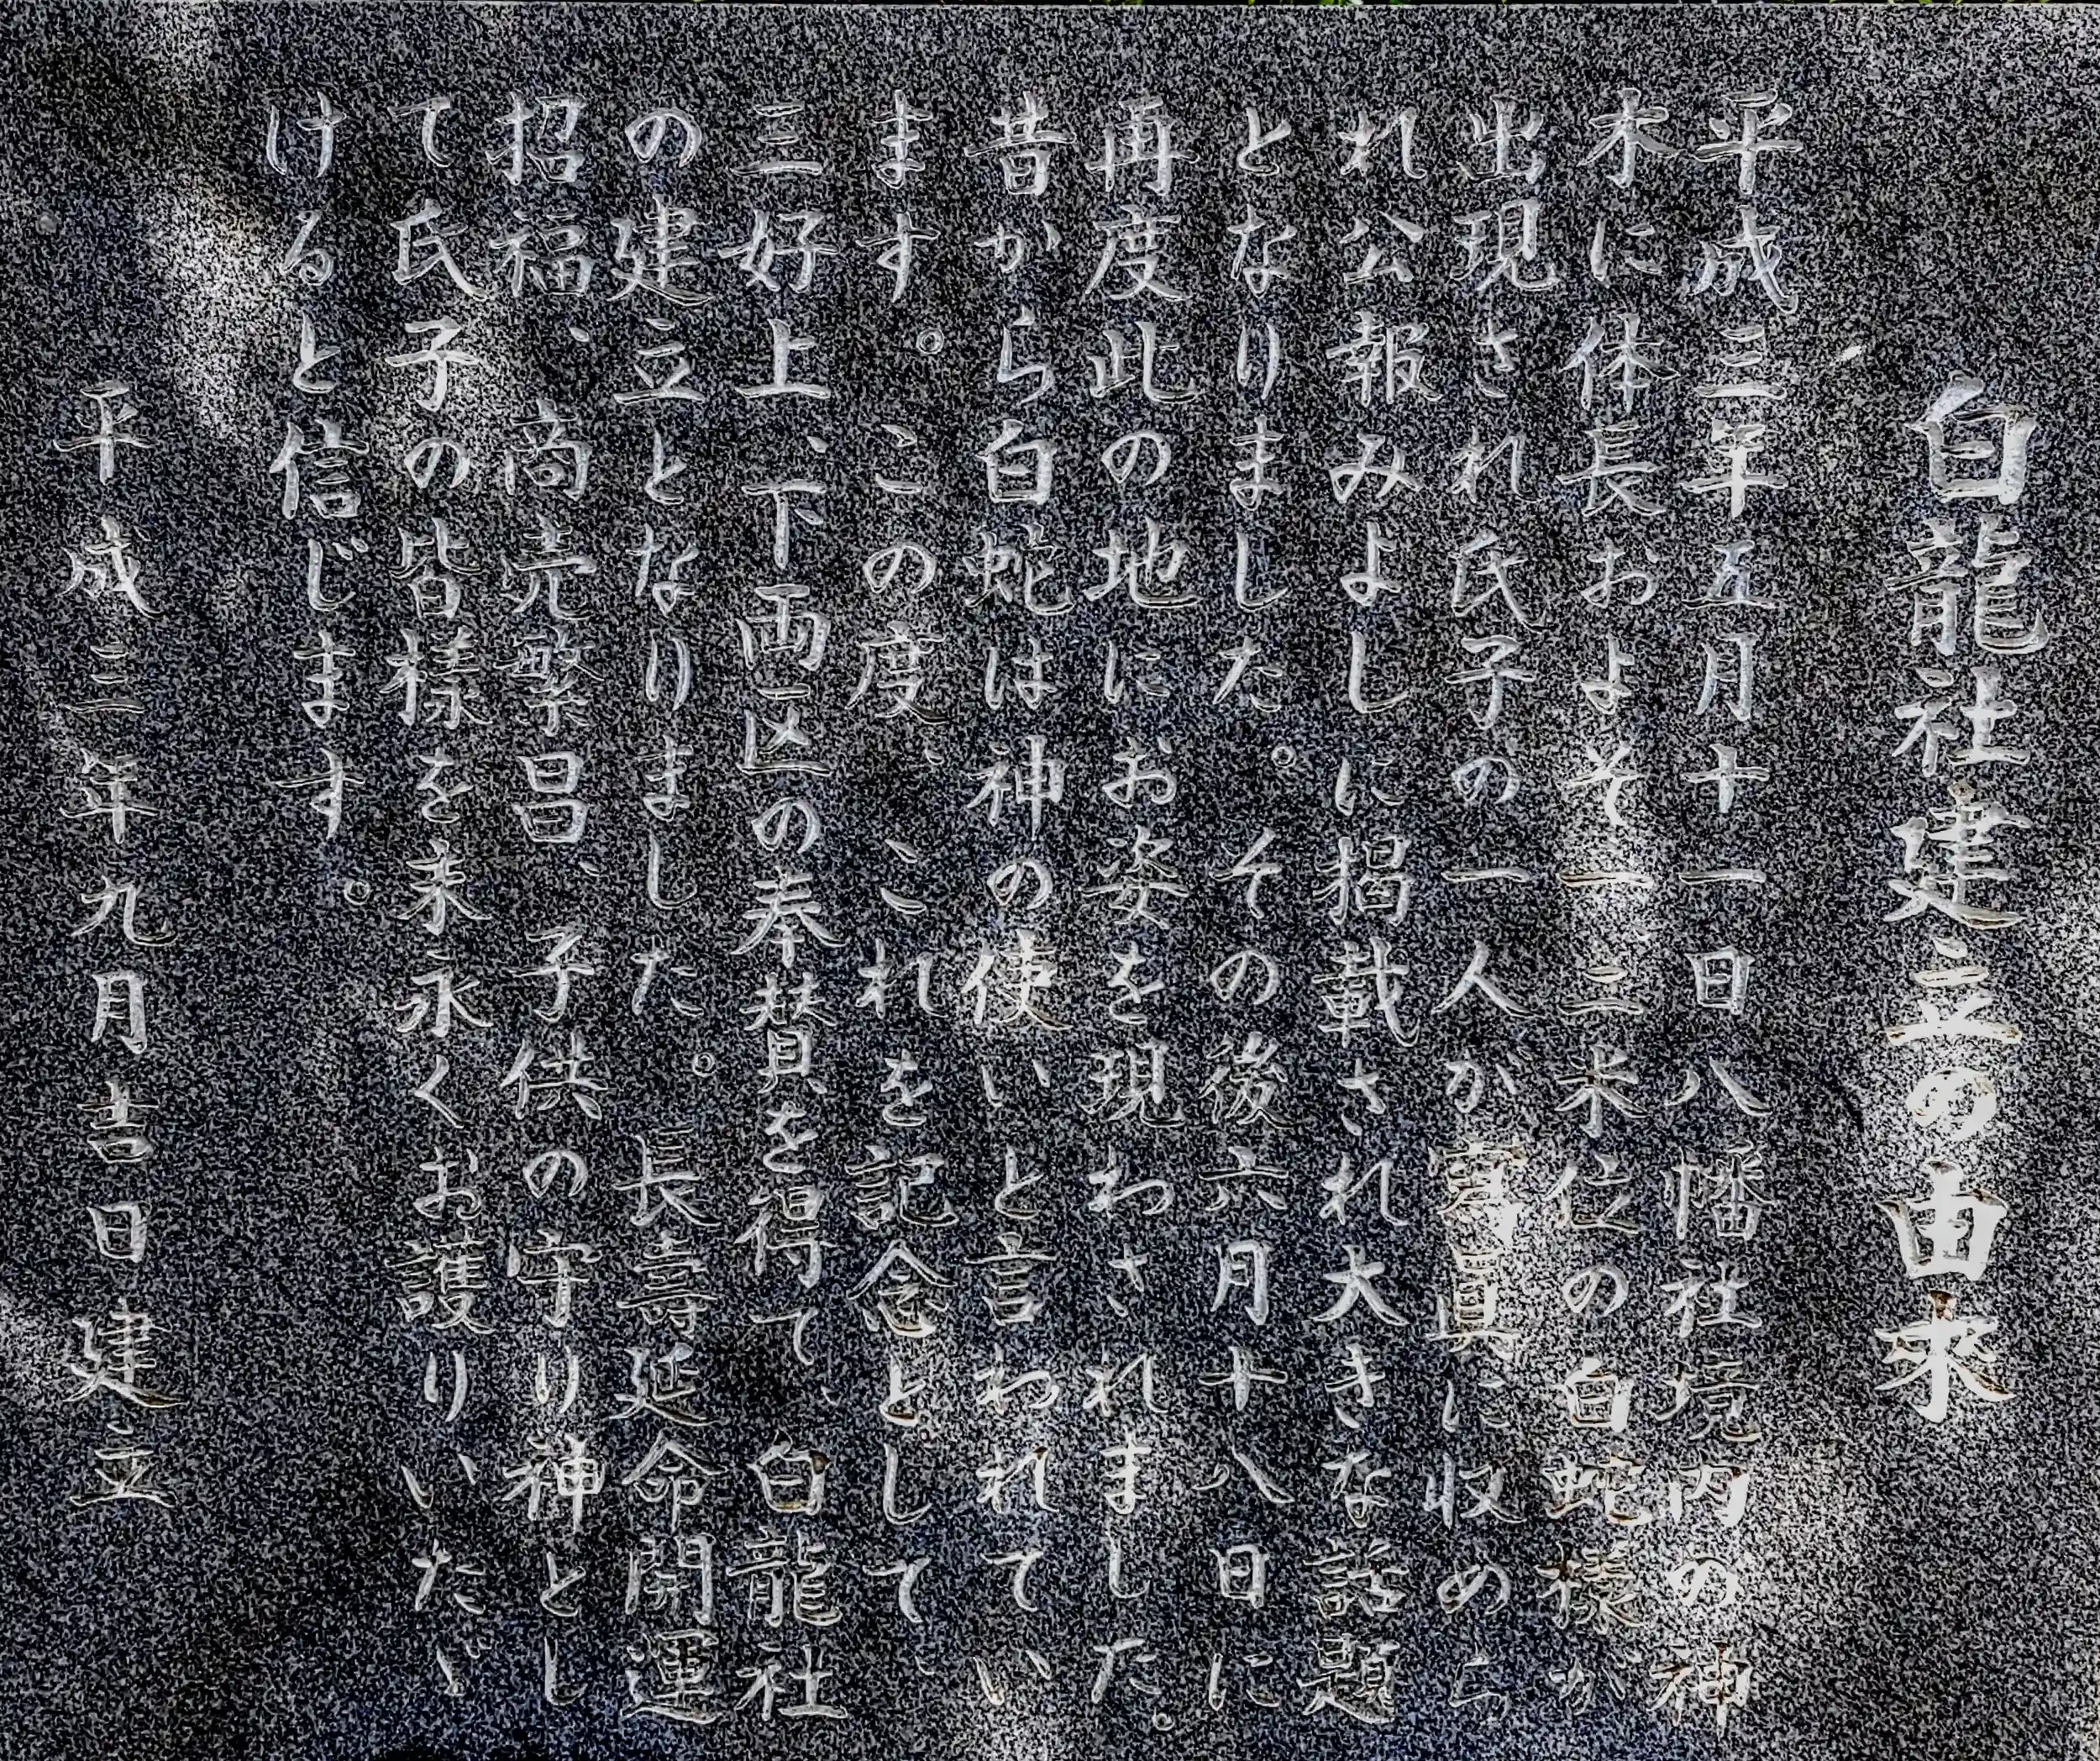 白龍社建立の由来
平成三年五月十一日八幡社境内の神
木に体長およそ一、三米位の白蛇様が
出現され氏子の一人が寫眞に収めら
れ公報みよしに掲載され大きな話題
となりました。その後六月十八日に
再度此の地にお姿を現わされました。
昔から白蛇は神の使いと言われてい
ます。この度、これを記念として、
三好上、下両区の奉賛を得て、白龍社
の建立となりました。長壽延命開運
招福、商売繁昌、子供の守り神とし
て氏子の皆様を末永くお護りいただ
けると信じます。
平成三年九月吉日建立